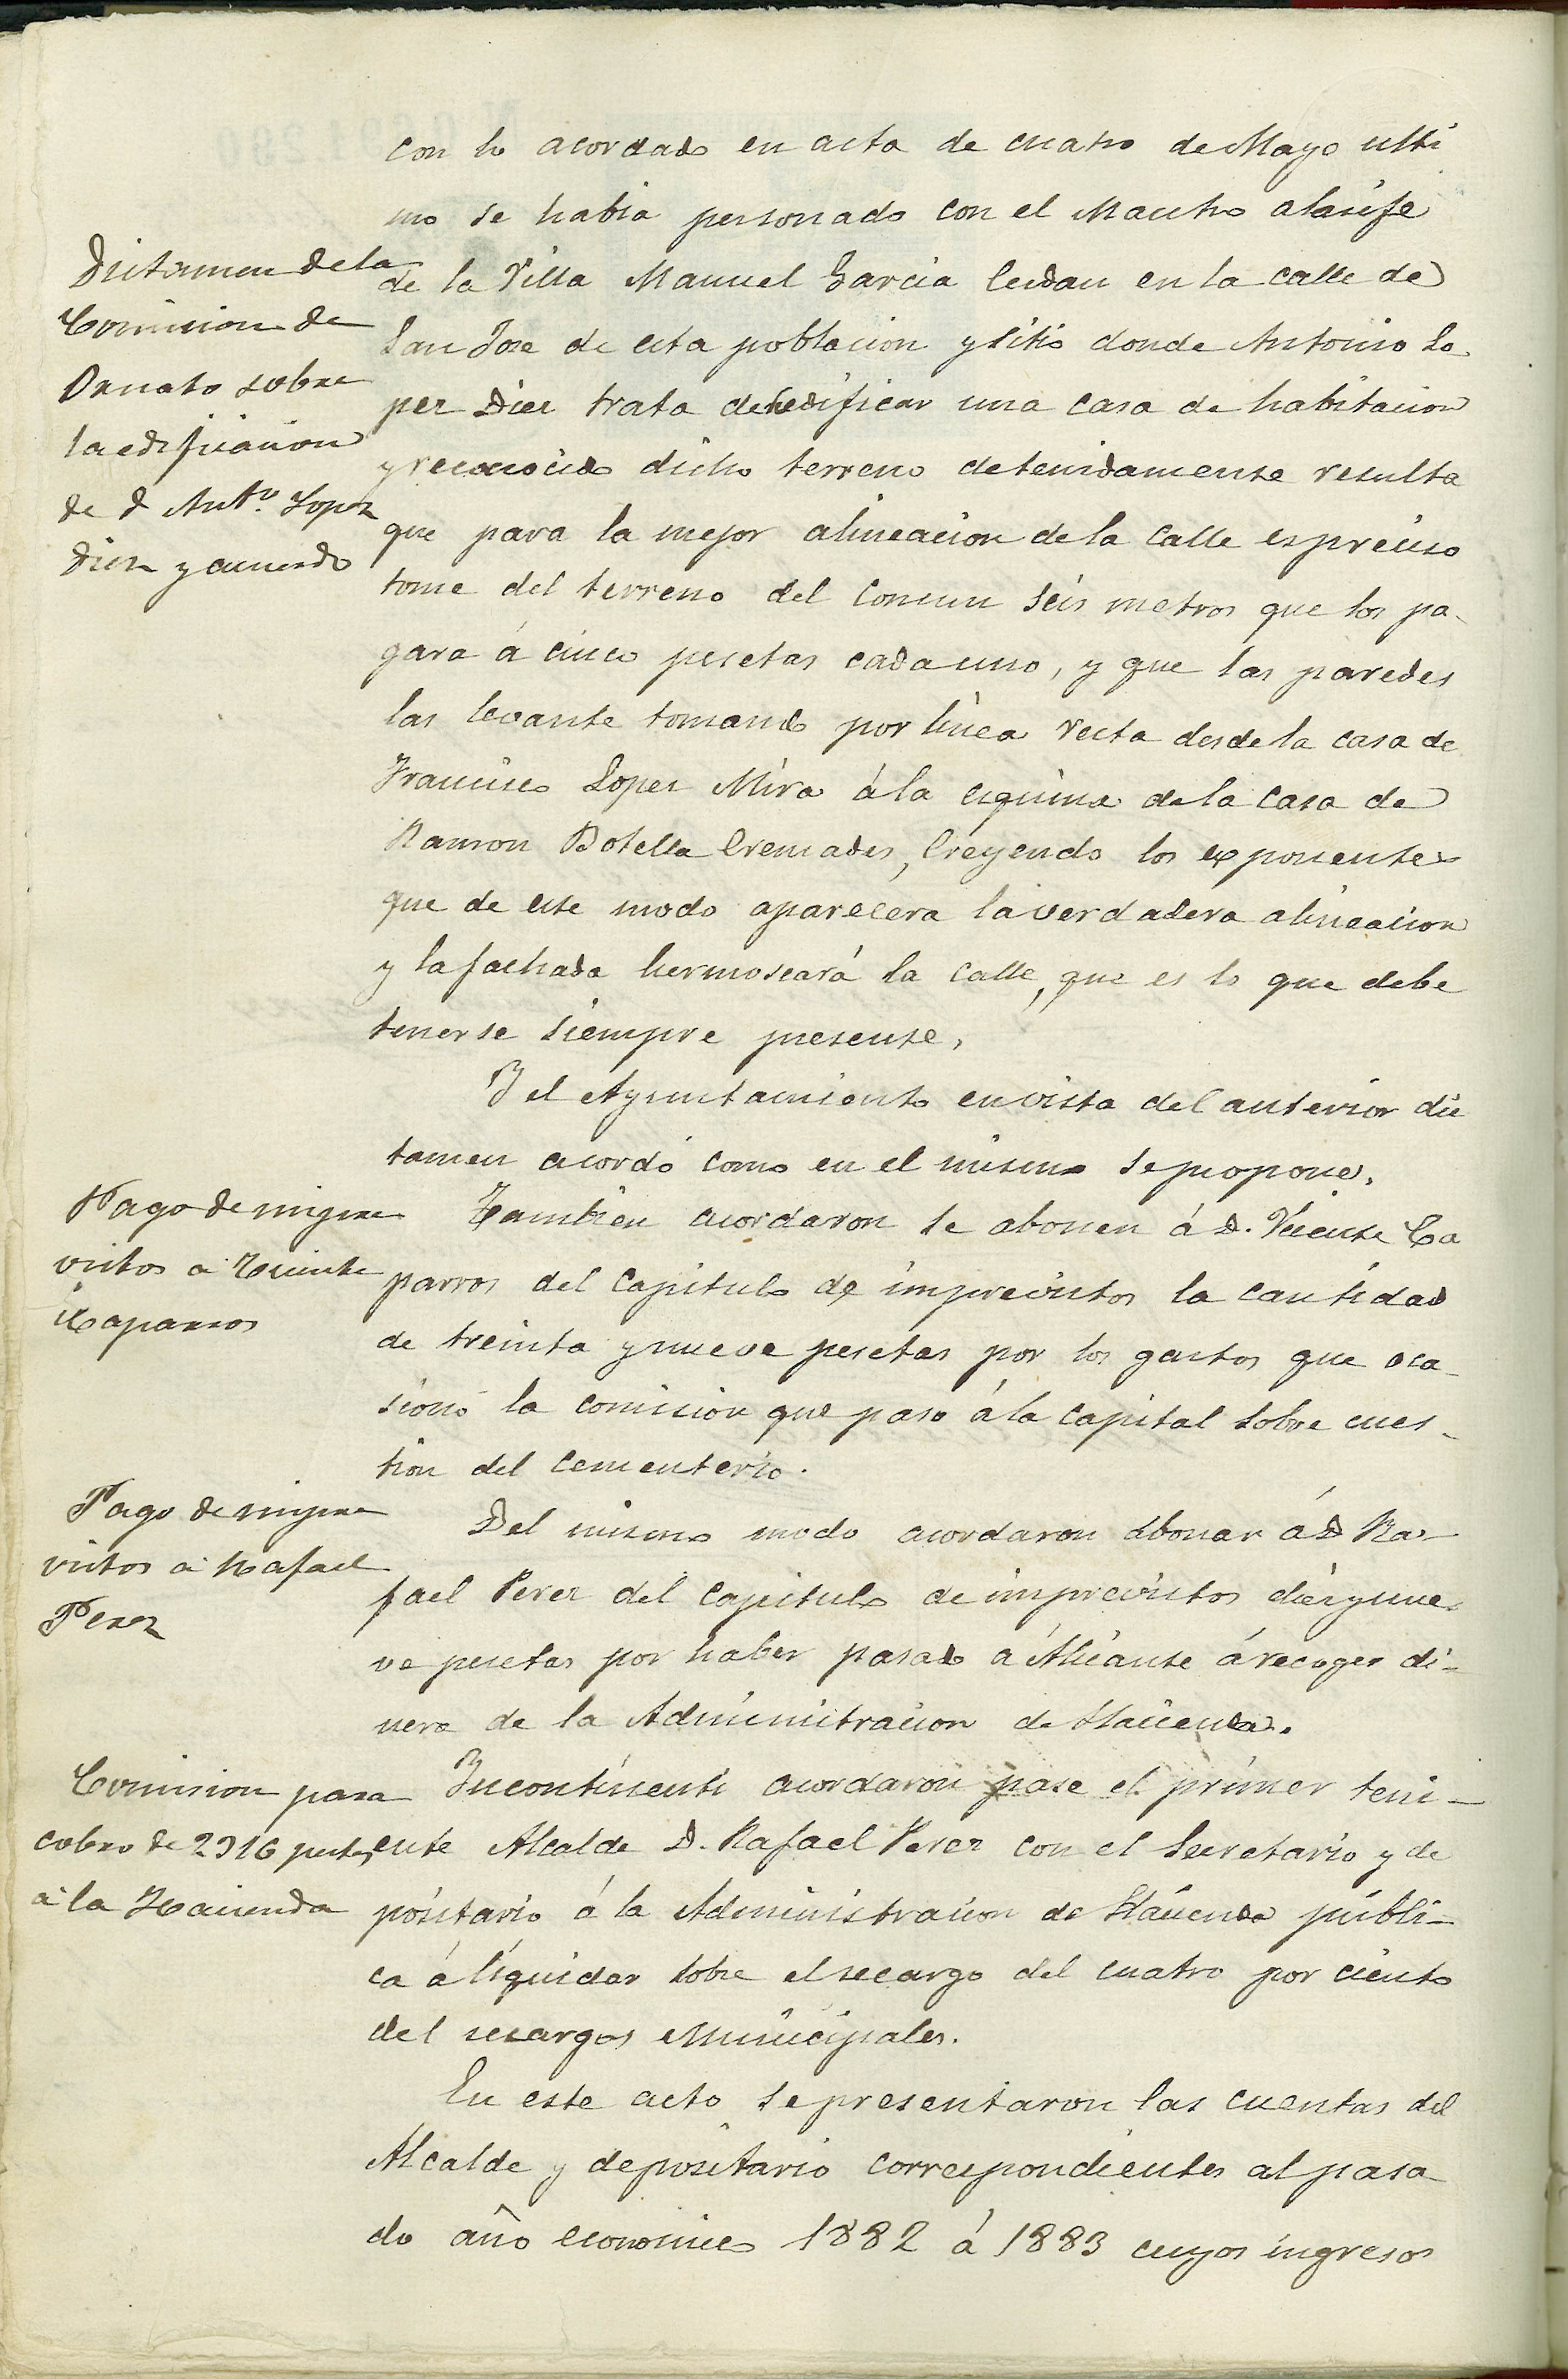 con lo acordado en acta de cuatro de Mayo ulti
mo se habia personado con el Maestro alarife
Dictamen de la
Comision de
Ornato sobre
la edificacion
de D Antº. Lopez
Diez y acuerdo
de la Villa Manuel Garcia Cerdan en la calle de
San Jose de esta poblacion y sitio donde Antonio Lo
pez Diez trata de redificar una casa de habitacion
y reconocido dicho terreno detenidamente resulta
que para la mejor alineacion de la calle es preciso
tome del terreno del Comun seis metros que los pa-
gara á cinco pesetas cada uno, y que las paredes
las levante tomando por linea recta desde la casa de
Francisco Lopez Mira á la esquina de la casa de
Ramon Botella Cremades, Creyendo los exponentes
que de este modo aparecera la verdadera alineacion
y la fachada hermoseará la calle, que es lo que debe
tenerse siempre presente.
Y el Ayuntamiento en vista del anterior dic
tamen acordó como en el mismo se propone.
Pago de impre
vistos a Vicente
Caparros
Tambien acordaron se abonen á D. Vicente Ca
parros del Capitulo de imprevistos la cantidad
de treinta y nueve pesetas por los gastos que oca-
sionó la comision que paso á la capital sobre cues-
tion del cementerio.
Pago de impre
vistos a Rafael
Perez
Del mismo modo acordaron abonar á D Ra-
fael Perez del Capitulo de imprevistos diez y nue-
ve pesetas por haber pasado á Alicante á recoger di-
nero de la Administracion de Hacienda.
Comision para
cobro de 2916 pestas
a la Hacienda
Incontinenti acordaron pase el primer teni-
ente Alcalde D. Rafael Perez con el Secretario y de
positario á la Administracion de Hacienda publi-
ca á liquidar sobre el recargo del cuatro por ciento
del recargos Municipales.
En este acto se presentaron las cuentas del
Alcalde y depositario correspondientes al pasa
do año economico 1882 á 1883 cuyos ingresos